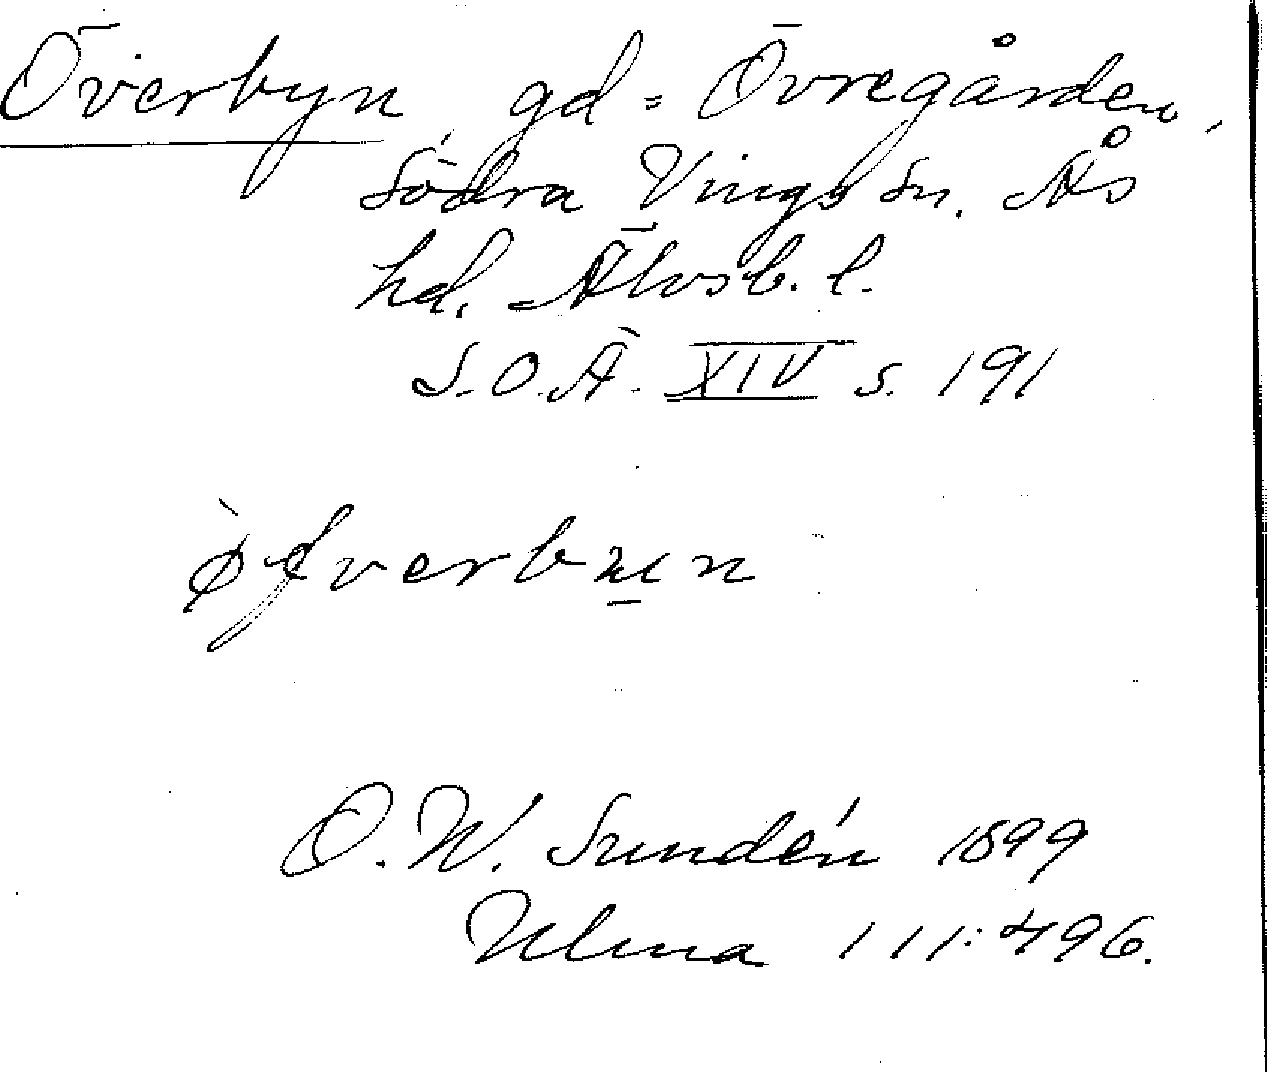 Överbyn, gd = Övregården,
Södra Vings sn. Ås
hd. Älvsb. l.
S.O.Ä. XIV s. 191
O. W. Sundén 1899
Ulma 111:496.